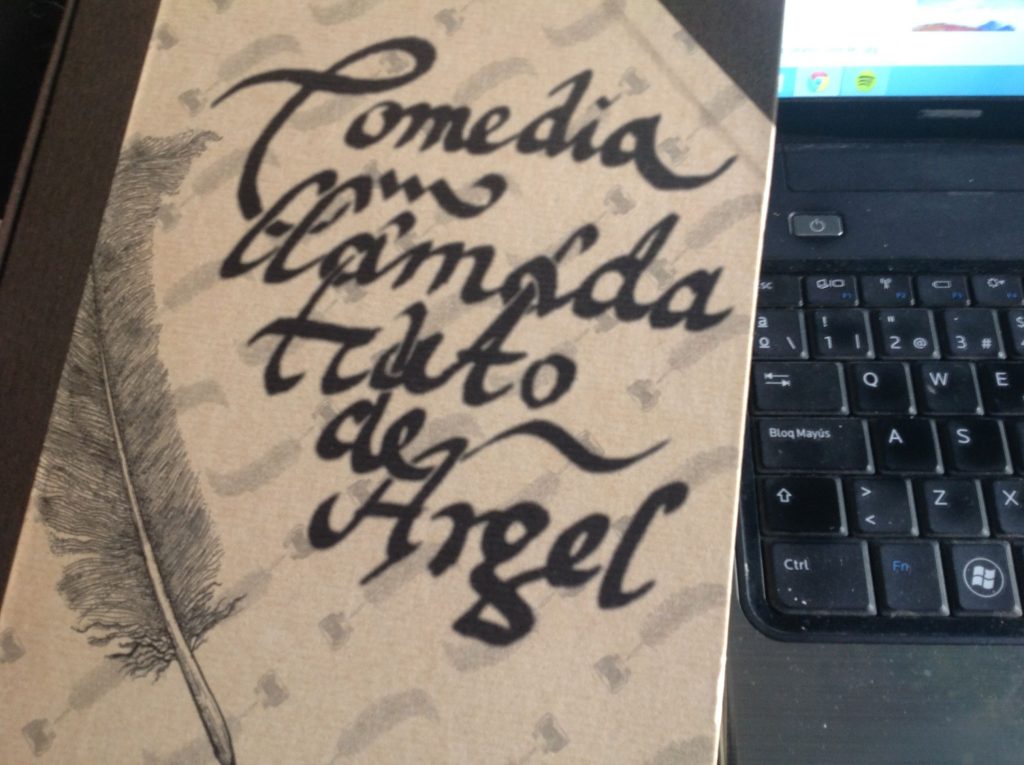 Comedia
llamada
trato
de
Argel
esc
F1
F2
F3
F4
ª º \
! 1 |
" 2 @
· 3 #
Q
W
E
Bloq Mayús
A
S
> <
Z
X
Ctrl
Fn